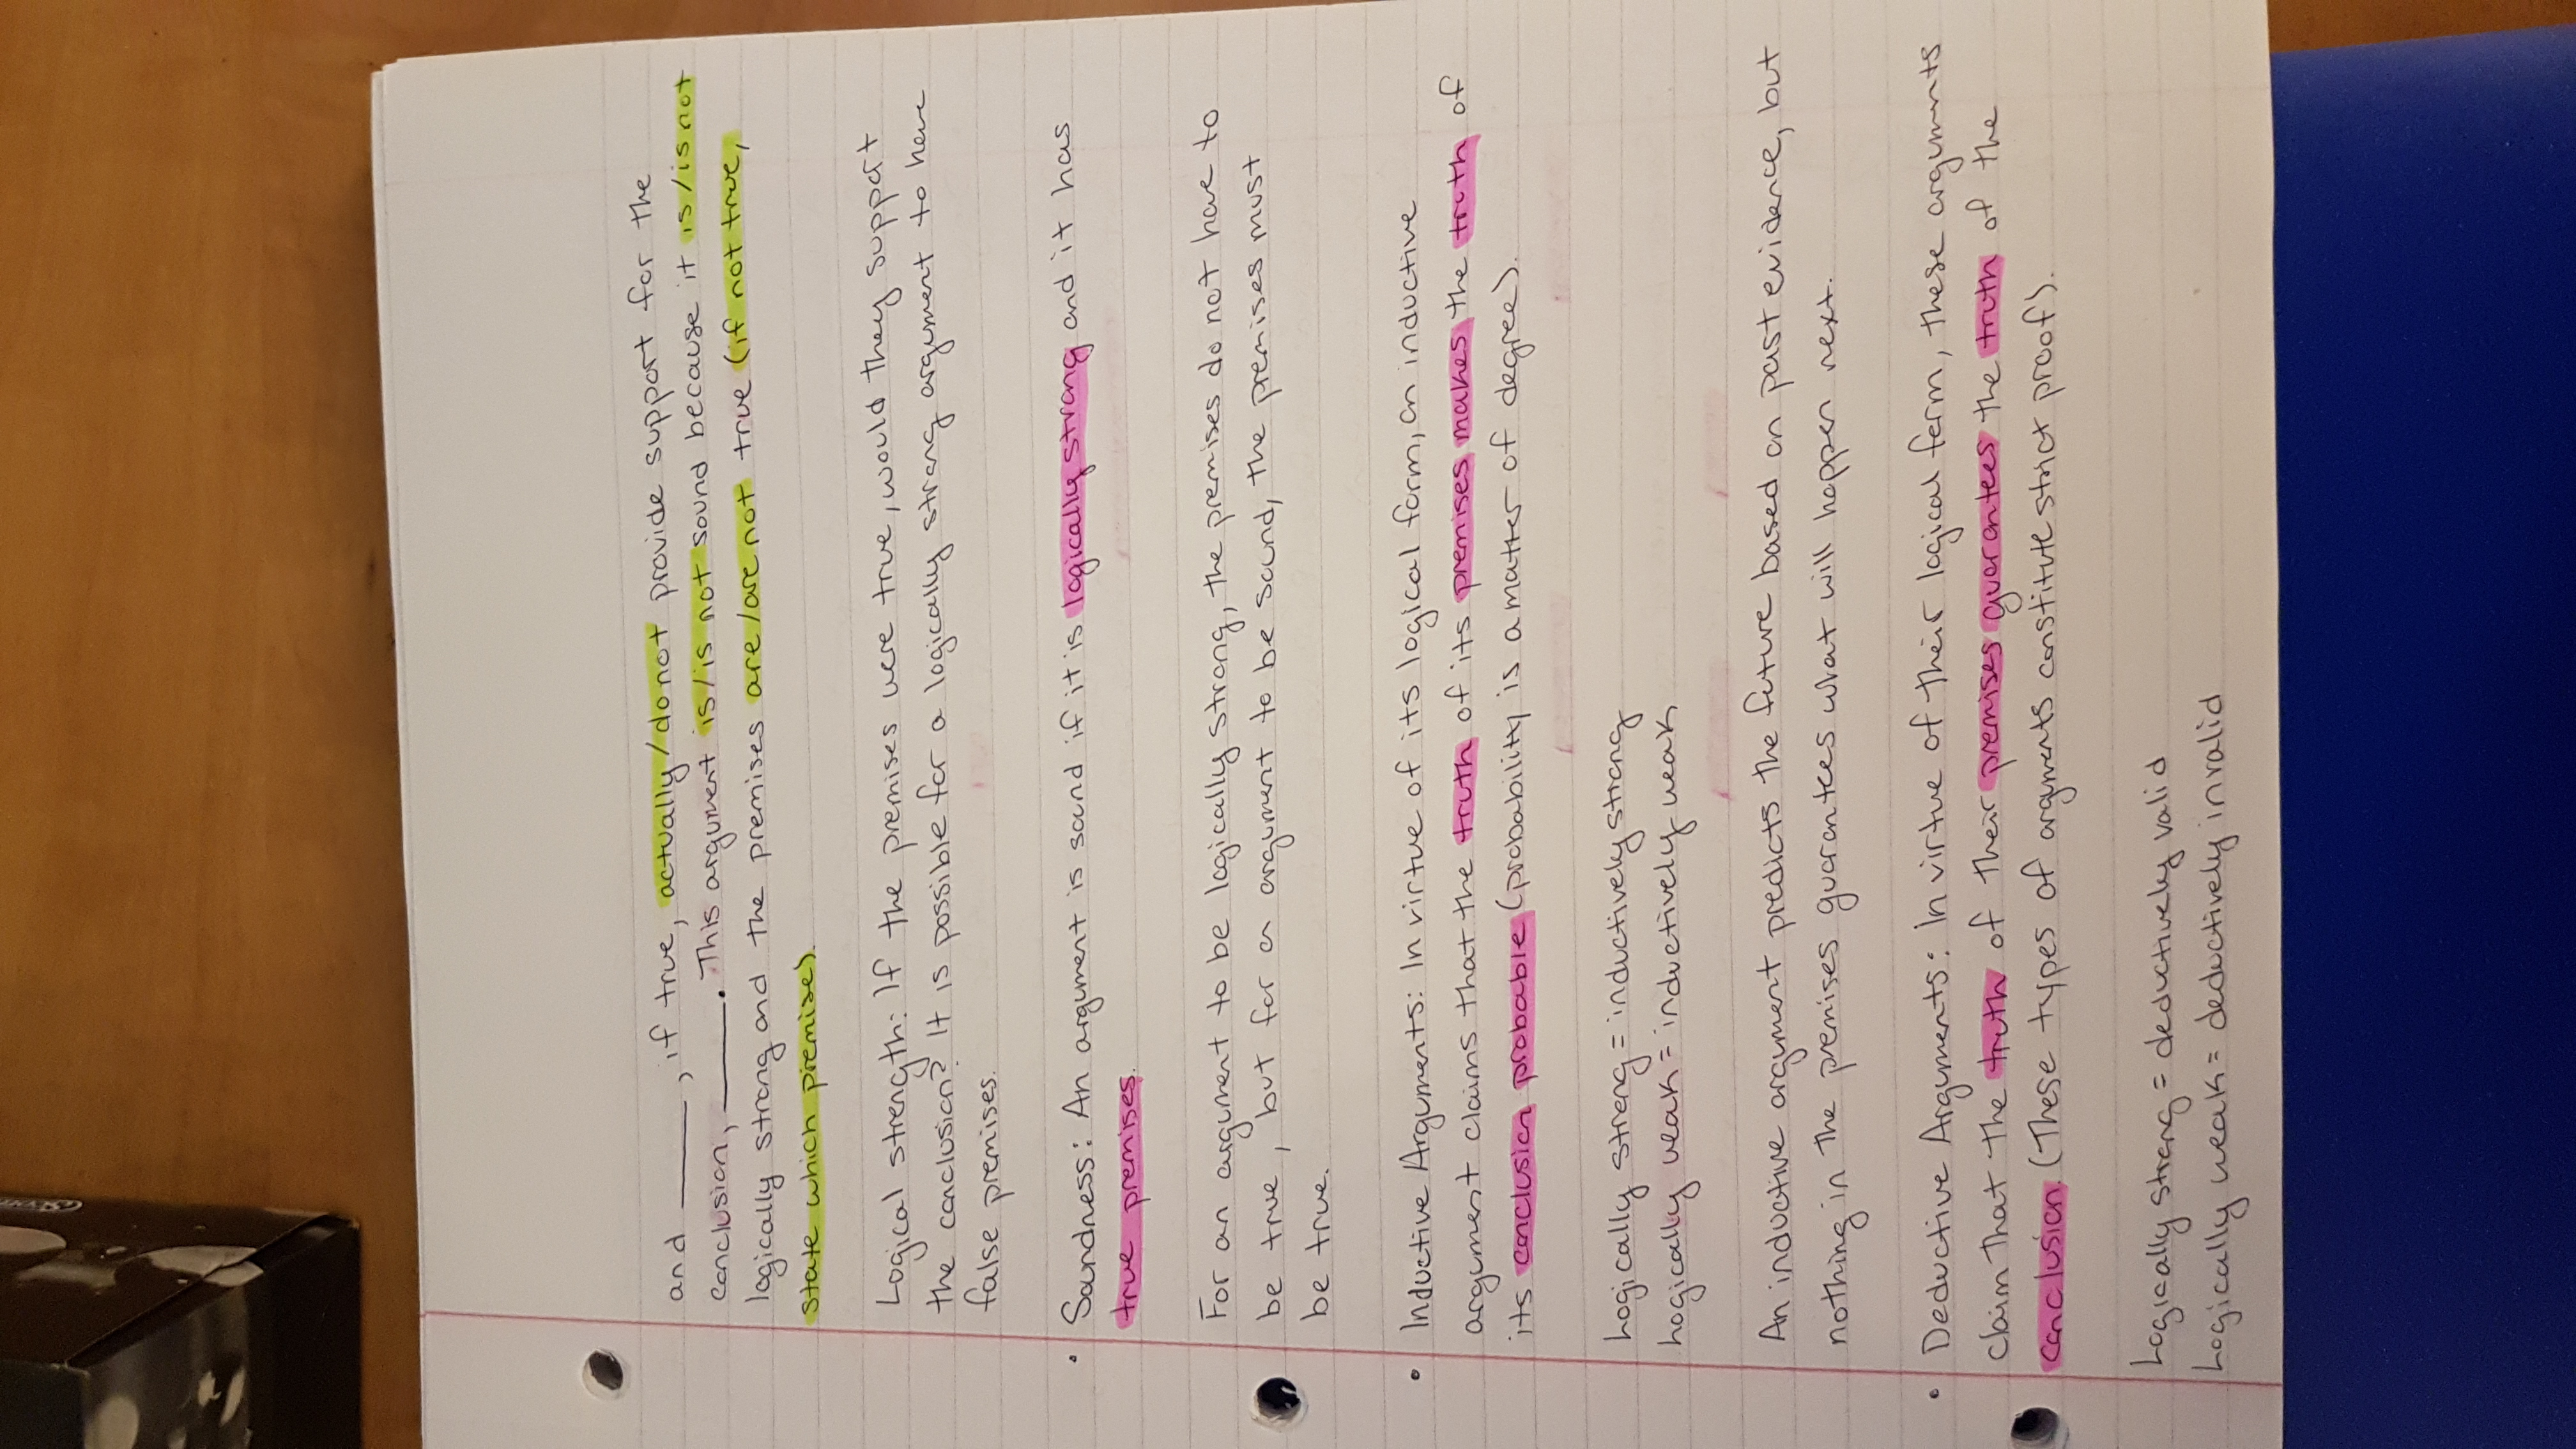 and ______, if true, actually/do not provide support for the
conclusion, ______. This argument is/is not sound because it is/is not
logically strong and the premises are/are not true (if not true,
state which premise).
Logical strength: If the premises were true, would they support
the conclusion? It is possible for a logically strong argument to have
false premises.
• Soundness: An argument is sound if it is logically strong and it has
true premises.
For an argument to be logically strong, the premises do not have to
be true, but for a argument to be sound, the premises must
be true.
• Inductive Arguments: In virtue of its logical form, an inductive
argument claims that the truth of its premises makes the truth of
its conclusion probable (probability is a matter of degree).
Logically strong = inductively strong
Logically weak = inductively weak
An inductive argument predicts the future based on past evidence, but
nothing in the premises guarantees what will happen next.
• Deductive Arguments: In virtue of their logical form, these arguments
claim that the truth of their premises guarantees the truth of the
conclusion. (These types of arguments constitute strict proof).
Logically strong = deductively valid
Logically weak = deductively invalid